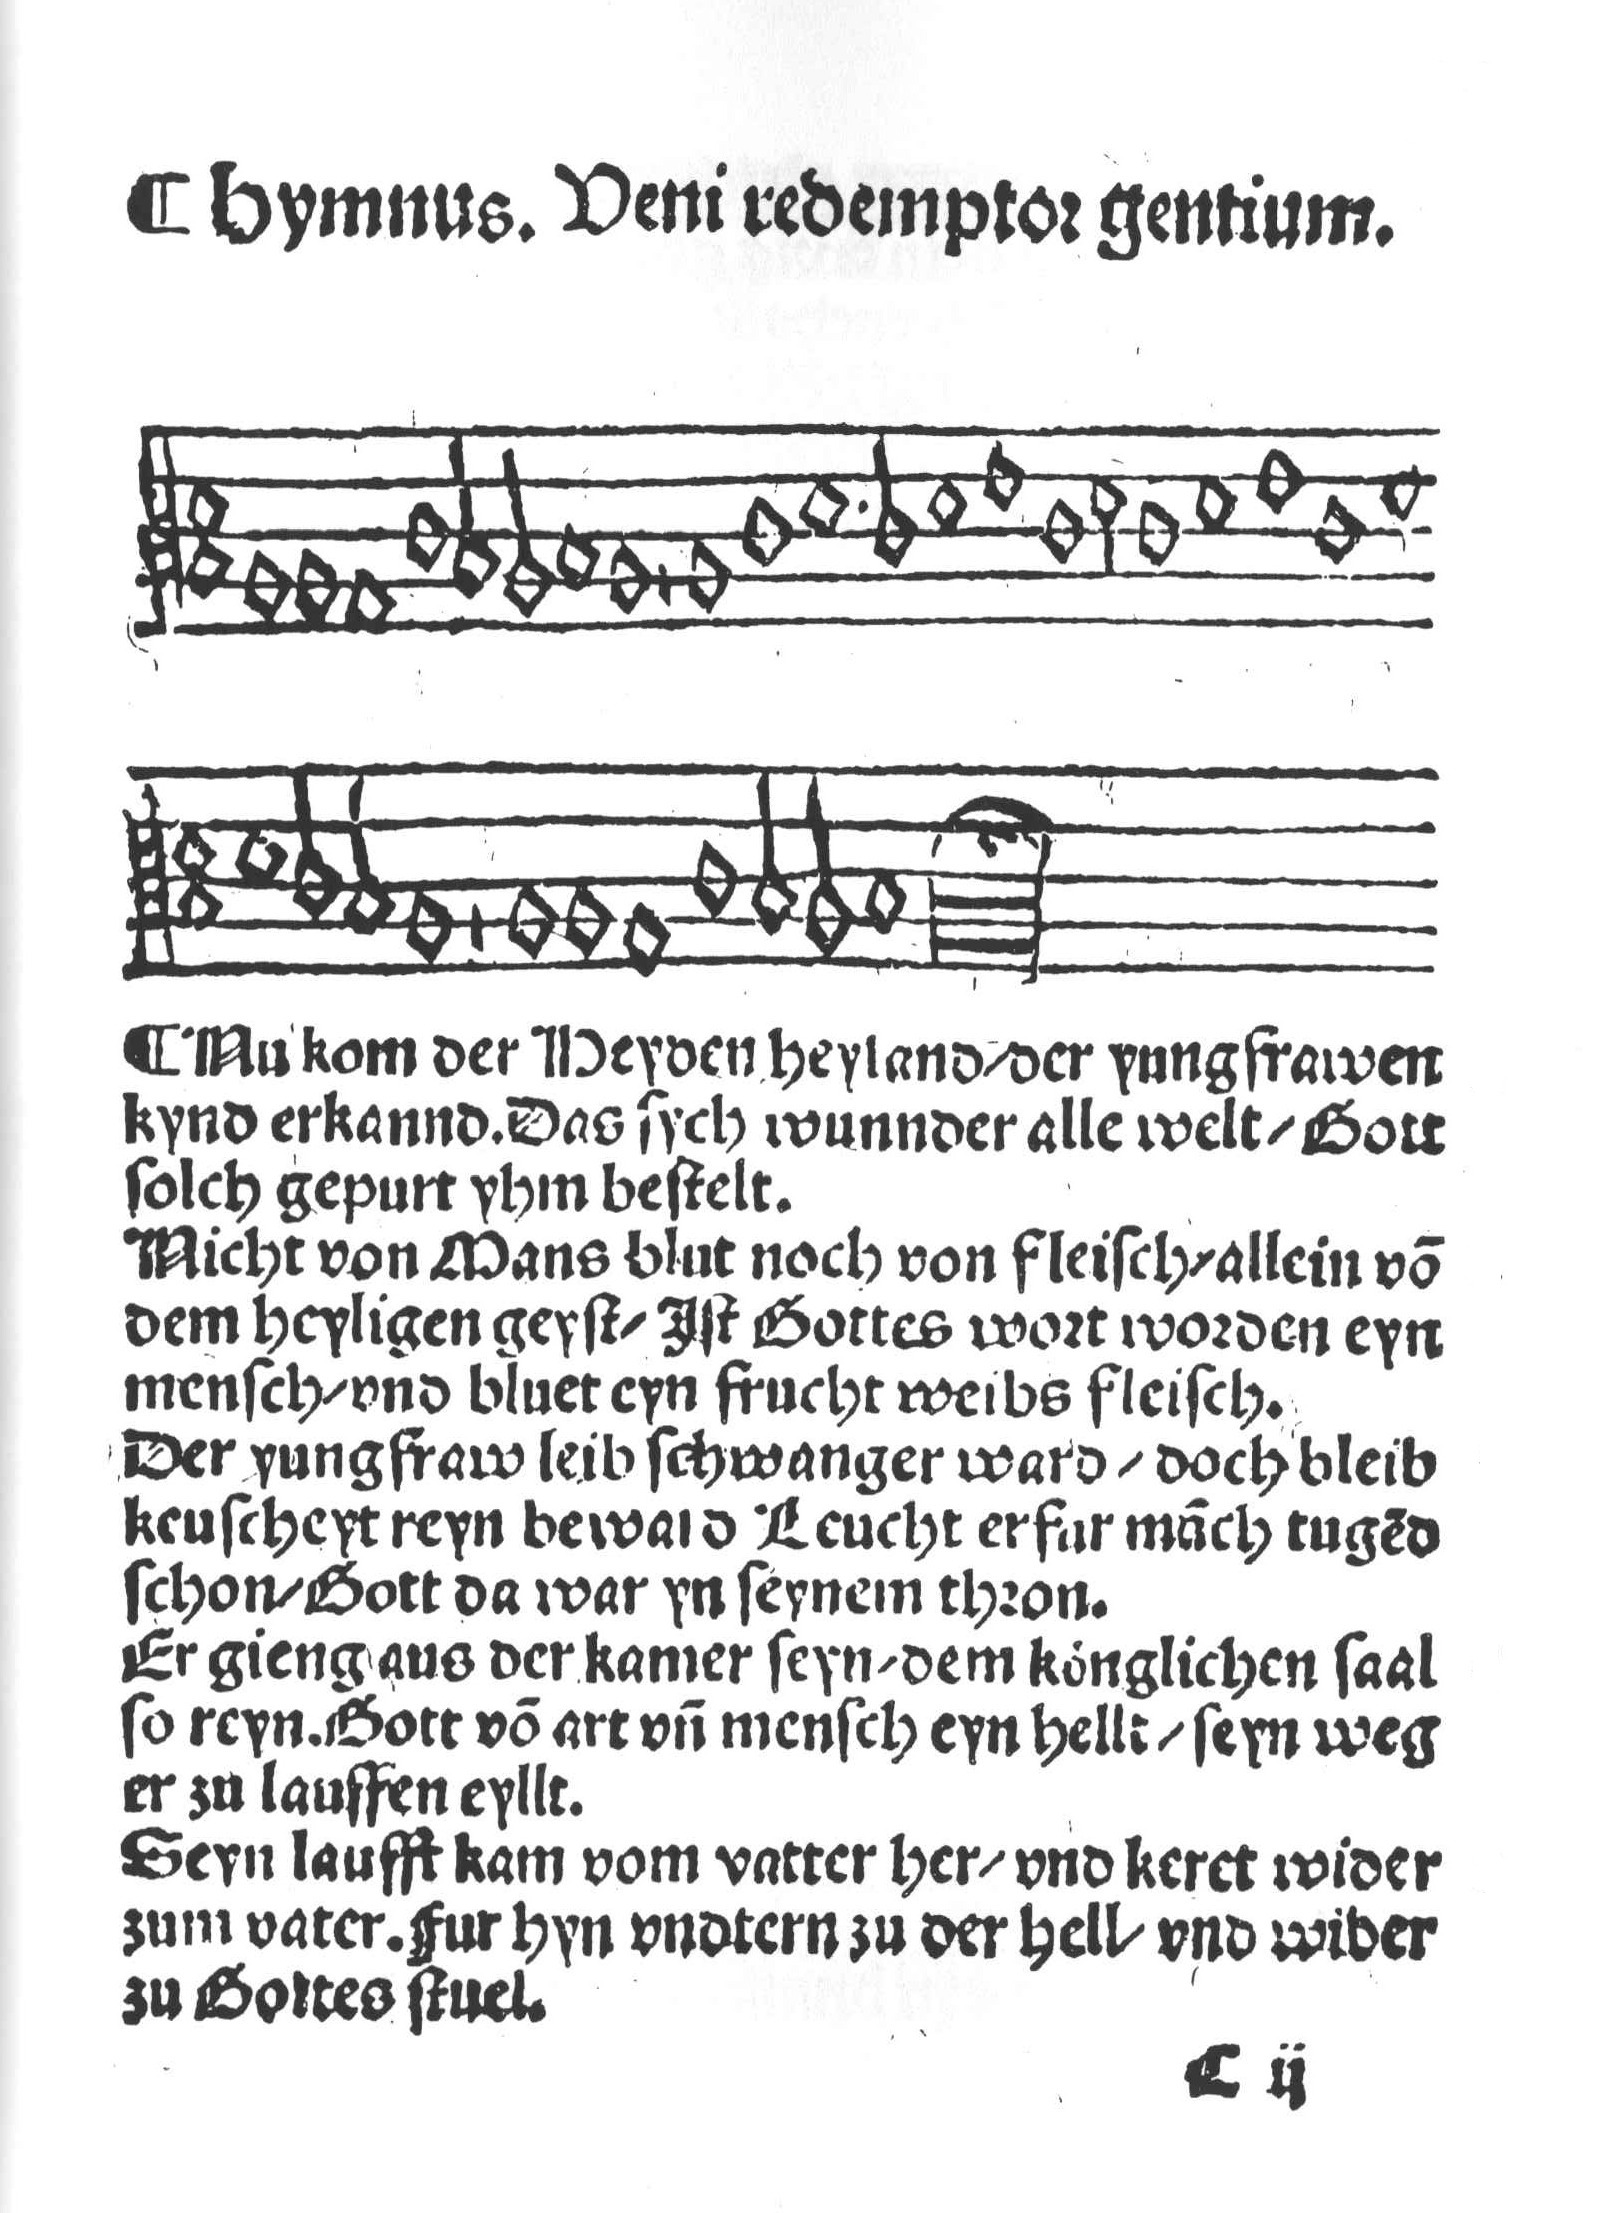 Hymnus. Veni redemptor gentium.
Nu kom der Heyden heyland/der yungfrawen
kynd erkannd.Das ſych wunnder alle welt/Gott
ſolch gepurt yhm beſtelt.
Nicht von Mans blut noch von fleiſch/allein vō
dem heyligen geyſt/Iſt Gottes woꝛt woꝛden eyn
menſch/vnd bluet eyn frucht weibs fleiſch.
Der yungfraw leib ſchwanger ward/doch bleib
keuſcheyt reyn beward Leucht erfur māch tugēd
ſchon/Gott da war yn ſeynem thꝛon.
Er gieng aus der kamer ſeyn/dem könglichen ſaal
ſo reyn.Gott vō art vn̄ menſch eyn hellt/ſeyn weg
er zu lauffen eyllt.
Seyn laufft kam vom vatter her/vnd keret wider
zum vater.Fur hyn vndtern zu der hell/vnd wider
zu Gottes ſtuel.
C ij